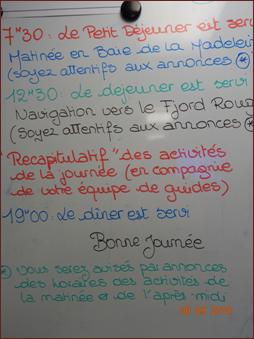 7"30: Le Petit Déjeuner est servi
Matinée en Baie de la Madeleine
(soyez attentifs aux annonces *)
12"30: Le déjeuner est servi
Navigation vers le Fjord Rouge
(Soyez attentifs aux annonces *
"Recapitulatif" des activités
de la journée (en compagnie
de votre équipe de guides)
19"00: Le dîner est servi
Bonne Journée
* Vous serez avisés par annonces
des horaires des activités de
la matinée et de l'après-midi